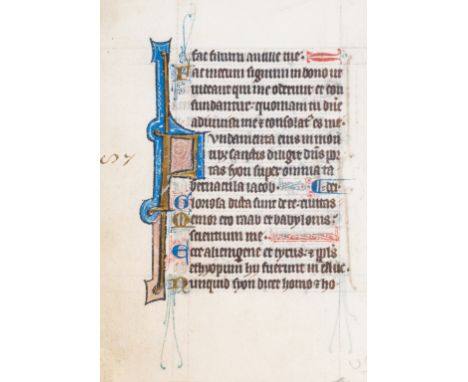 fac filium ancille tue.
Fac mecum signum in bono ut
videant qui me oderunt et con
fundantur: quoniam tu dñe
adiuvisti me et consolat' es me.
Fundamenta eius in mon
tibꝫ sanctis diligit dñs por
tas syon super omnia ta
bernacula iacob. dei.
Gloriosa dicta sunt de te: civitas
Memor ero raab et babylonis:
scientium me.
Ecce alienigene et tyrus: ⁊ ppls
ethyopum hii fuerunt illuc.
Nunquid syon dicet homo ⁊ ho